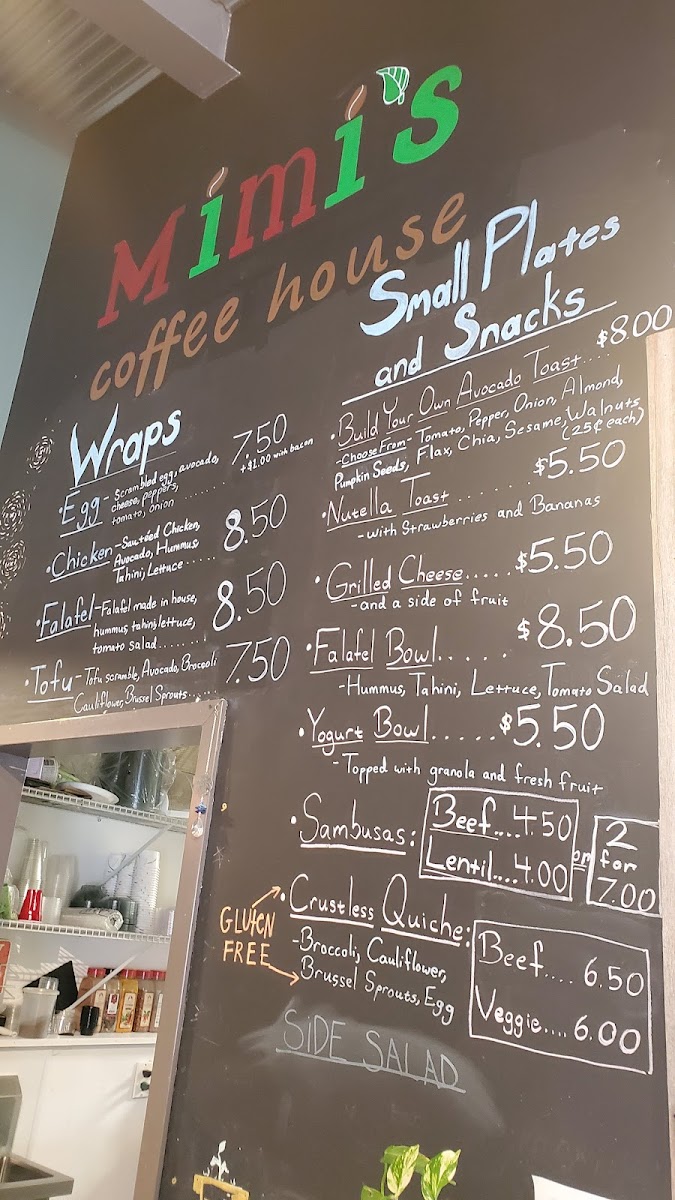 Mimi's
coffee house
Wraps
• Egg - Scrambled egg, avocado,
cheese, peppers,
tomato, onion ........ 7.50
+$1.00 with bacon
• Chicken - Sautéed Chicken,
Avocado, Hummus
Tahini, Lettuce ...... 8.50
• Falafel - Falafel made in house,
hummus, tahini, lettuce,
tomato salad ........ 8.50
• Tofu - Tofu scramble, Avocado, Broccoli
Cauliflower, Brussel Sprouts ... 7.50
Small Plates
and Snacks
• Build Your Own Avocado Toast .... $8.00
- Choose From - Tomato, Pepper, Onion, Almond,
Pumpkin Seeds, Flax, Chia, Sesame, Walnuts
(25¢ each)
• Nutella Toast ........ $5.50
- with Strawberries and Bananas
• Grilled Cheese..... $5.50
- and a side of fruit
• Falafel Bowl...... $8.50
- Hummus, Tahini, Lettuce, Tomato Salad
• Yogurt Bowl...... $5.50
- Topped with granola and fresh fruit
• Sambusas: Beef....4.50
Lentil....4.00 or 2
for
7.00
• Crustless Quiche:
- Broccoli, Cauliflower,
Brussel Sprouts, Egg
Beef.... 6.50
Veggie.... 6.00
GLUTEN
FREE
SIDE SALAD